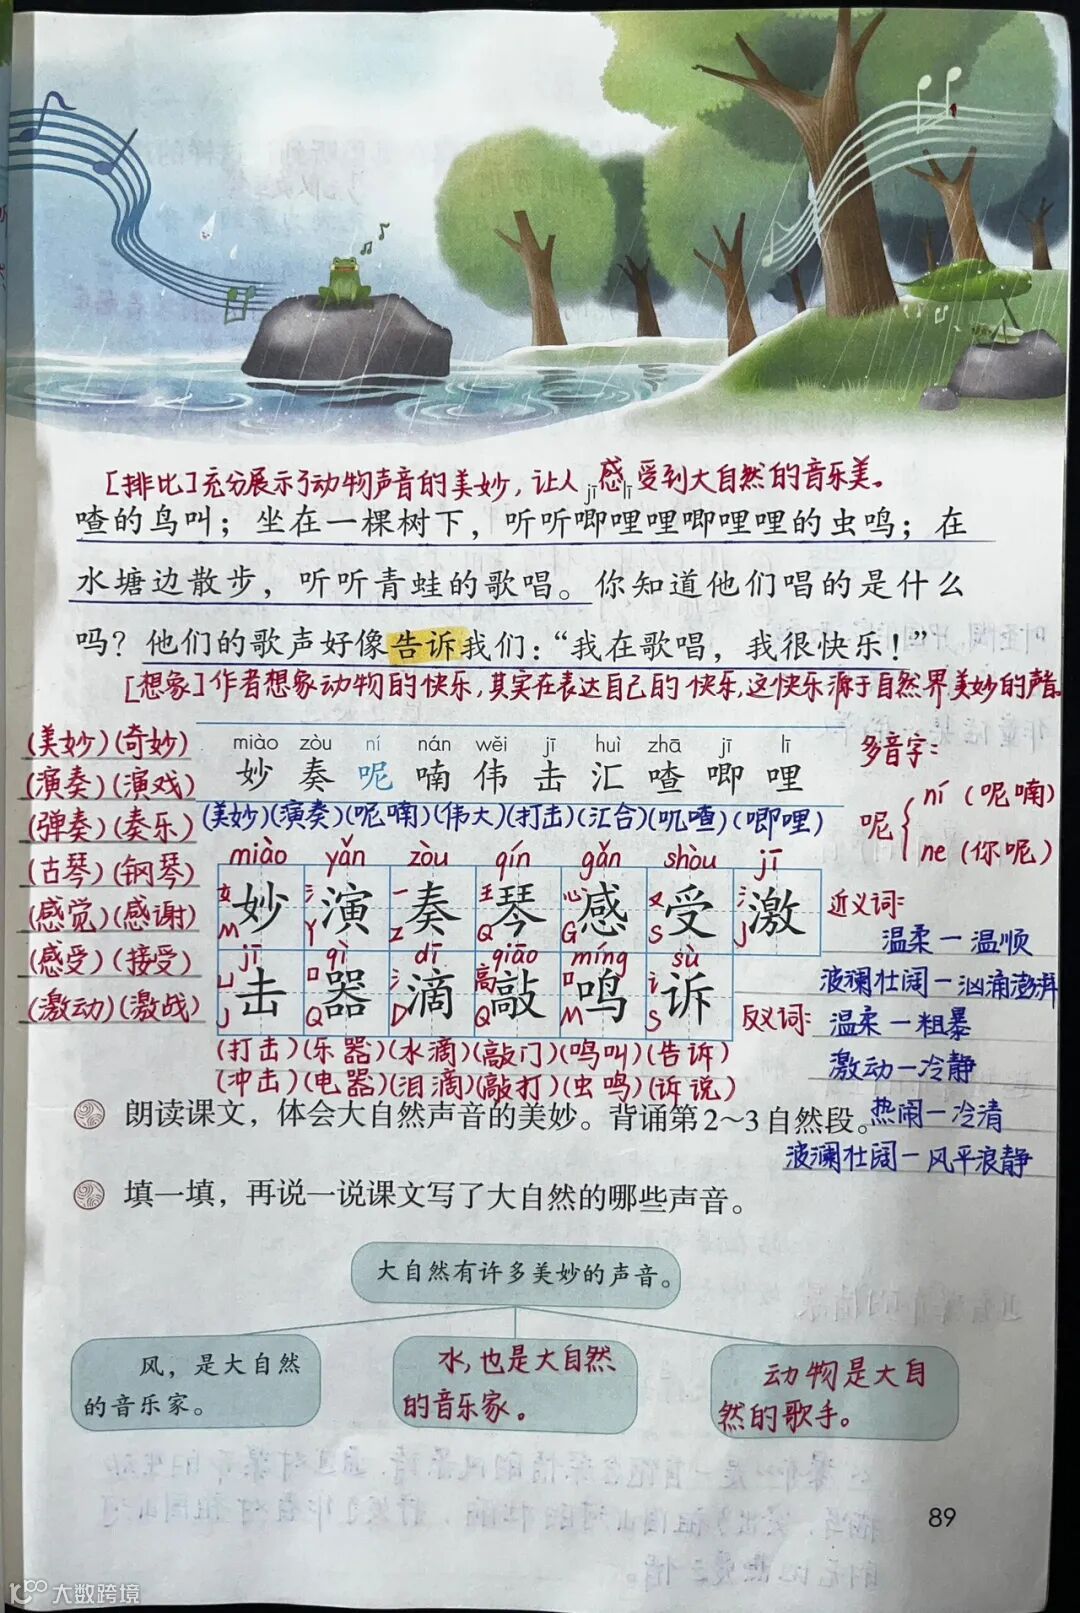 [排比]充分展示了动物声音的美妙,让人感受到大自然的音乐美。
jī lī
喳的鸟叫；坐在一棵树下，听听唧哩哩唧哩哩的虫鸣；在
水塘边散步，听听青蛙的歌唱。你知道他们唱的是什么
吗？他们的歌声好像告诉我们：“我在歌唱，我很快乐！”
[想象]作者想象动物的快乐,其实在表达自己的快乐,这快乐源于自然界美妙的声音。
(美妙)(奇妙)
(演奏)(演戏)
(弹奏)(奏乐)
(古琴)(钢琴)
(感觉)(感谢)
(感受)(接受)
(激动)(激战)
miào zòu ní nán wěi jī huì zhā jī lī
妙 奏 呢 喃 伟 击 汇 喳 唧 哩
(美妙)(演奏)(呢喃)(伟大)(打击)(汇合)(叽喳)(唧哩)
多音字:
呢 ní (呢喃)
ne (你呢)
miào yǎn zòu qín gǎn shòu jī
女 氵 一 王 心 又 氵
妙 演 奏 琴 感 受 激
M Y Z Q G S J
jī qì dī qiāo míng sù
凵 口 氵 高 口 讠
击 器 滴 敲 鸣 诉
J Q D Q M S
(打击)(乐器)(水滴)(敲门)(鸣叫)(告诉)
(冲击)(电器)(泪滴)(敲打)(虫鸣)(诉说)
近义词:
温柔—温顺
波澜壮阔—汹涌澎湃
反义词: 温柔—粗暴
激动—冷静
热闹—冷清
波澜壮阔—风平浪静
朗读课文，体会大自然声音的美妙。背诵第2～3自然段。
填一填，再说一说课文写了大自然的哪些声音。
大自然有许多美妙的声音。
风，是大自然
的音乐家。
水,也是大自然
的音乐家。
动物是大自
然的歌手。
89
大数跨境